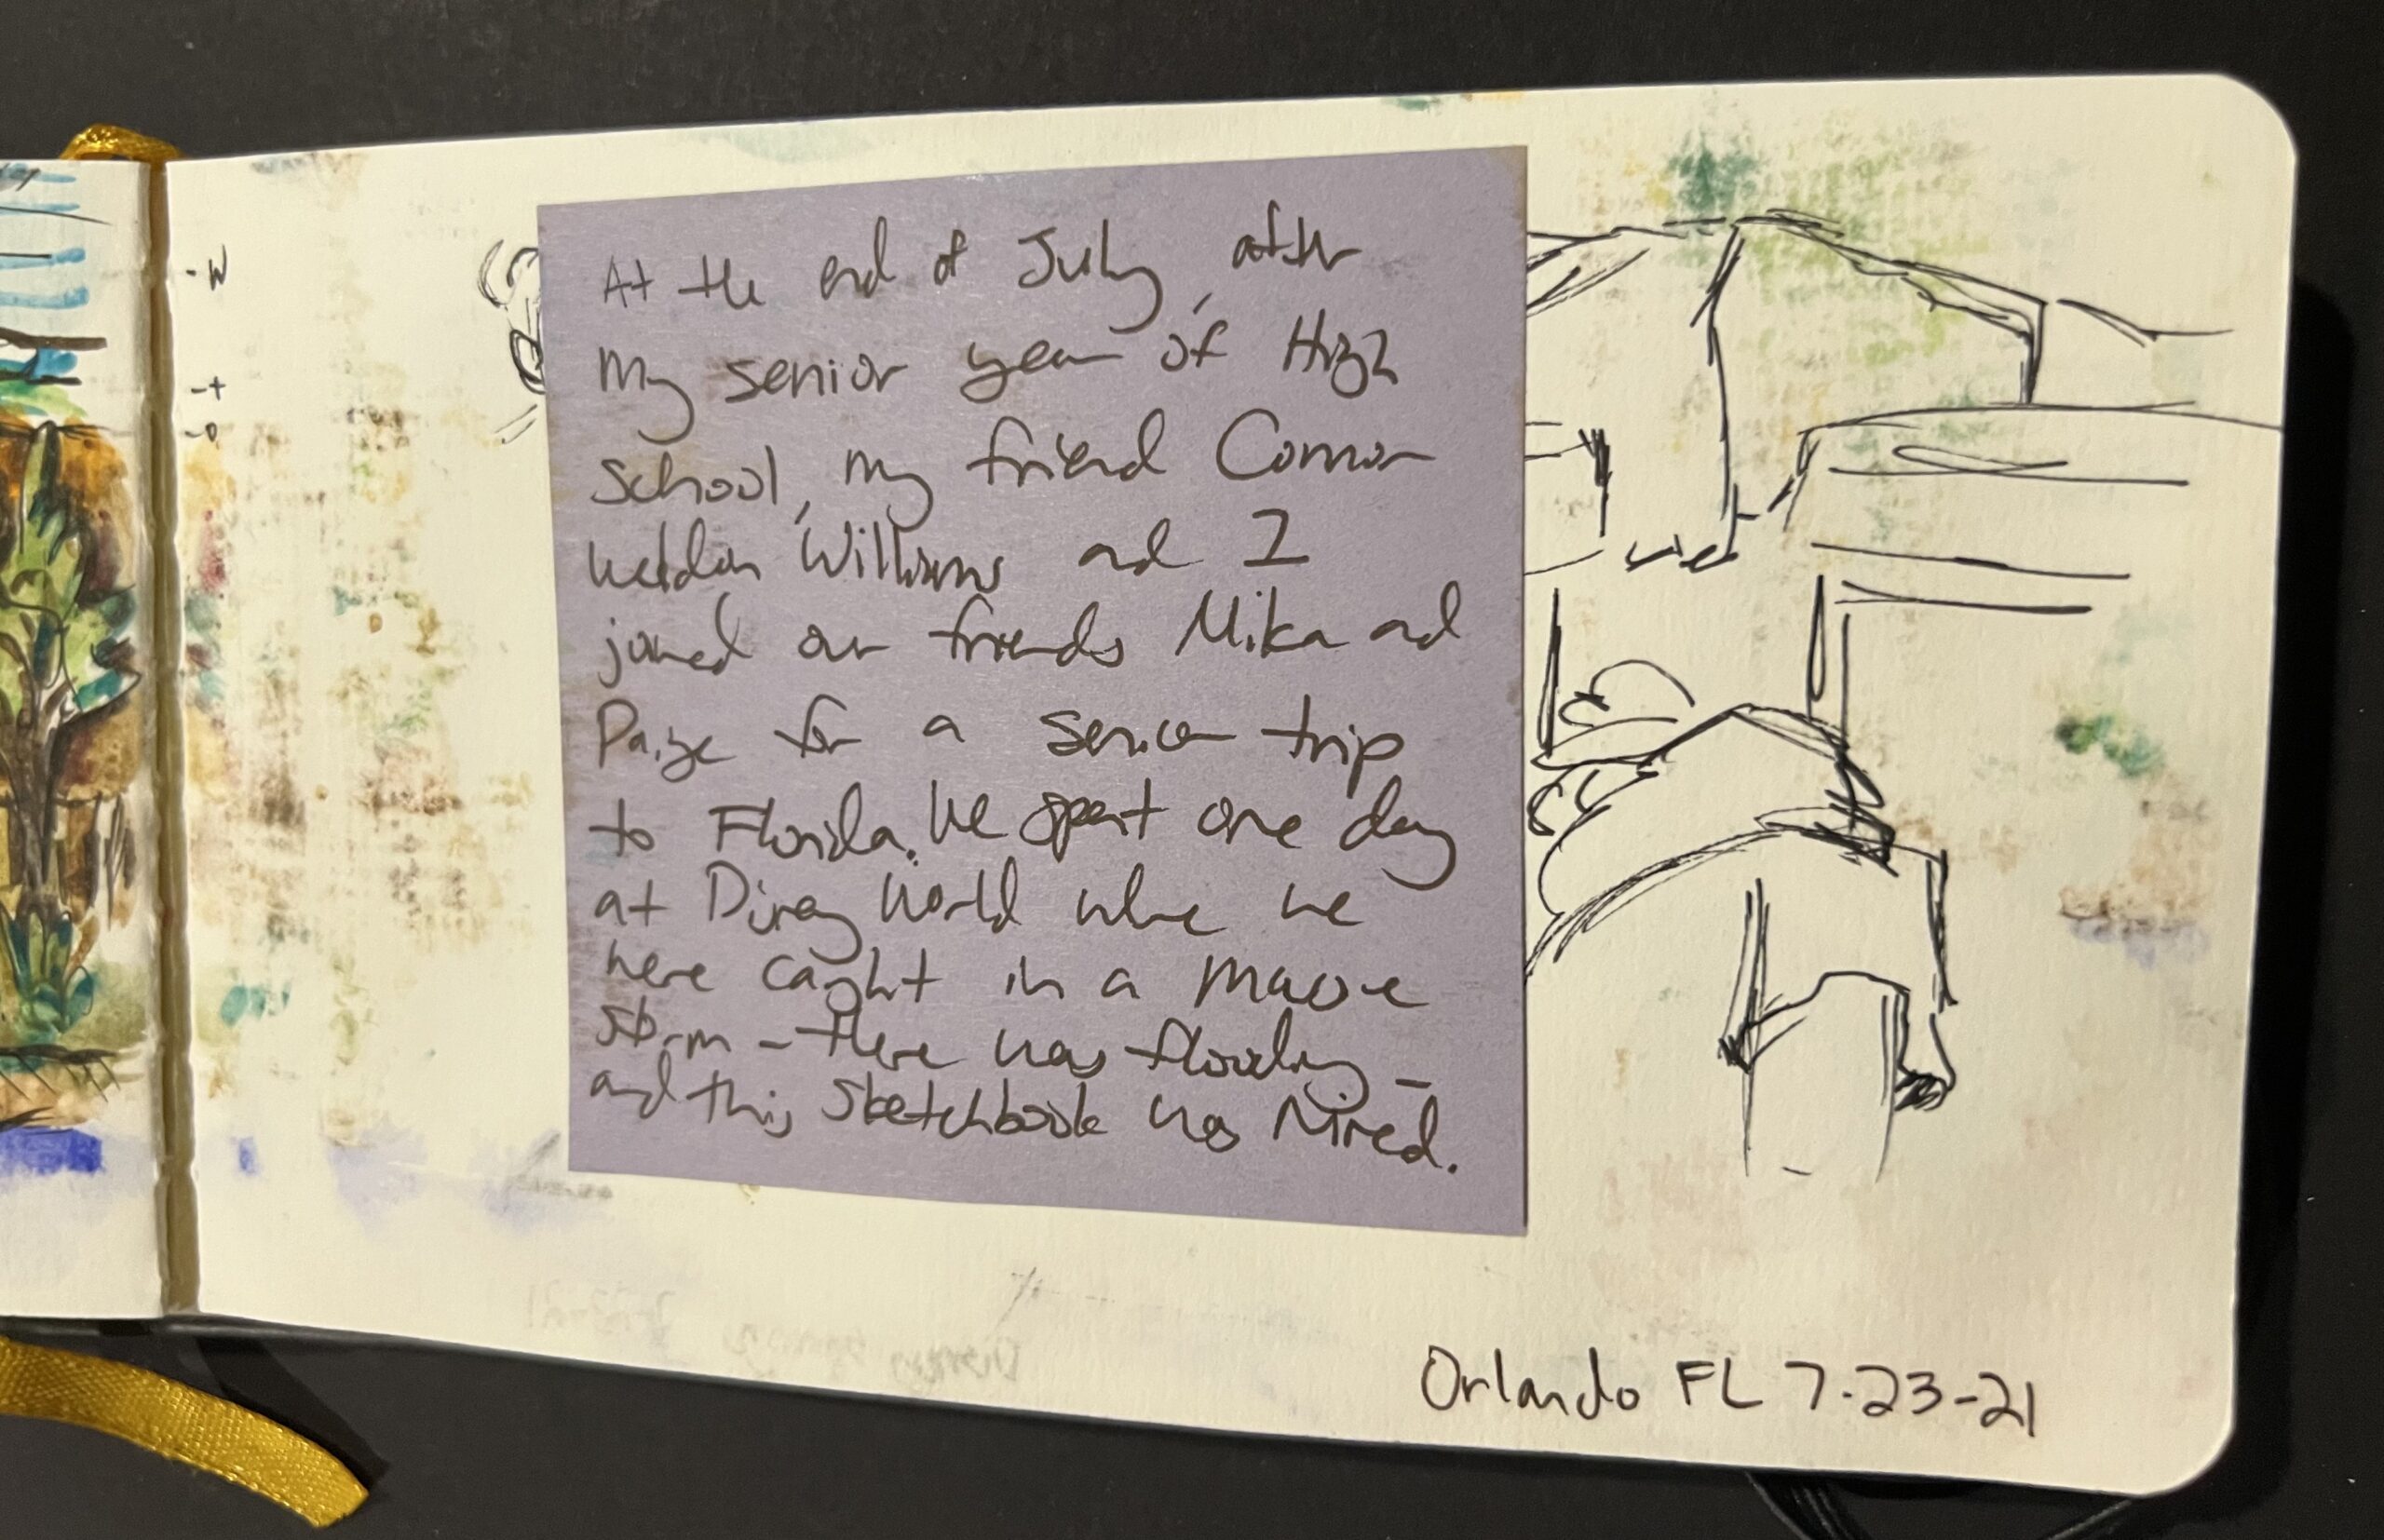 -W
-t
-o
At the end of July, after
my senior year of High
school, my friend Connor
Weldon Williams and I
joined our friends Mika and
Paige for a senior trip
to Florida. We spent one day
at Disney World where we
were caught in a massive
storm - there was flooding -
and this sketchbook was ruined.
Orlando FL 7-23-21